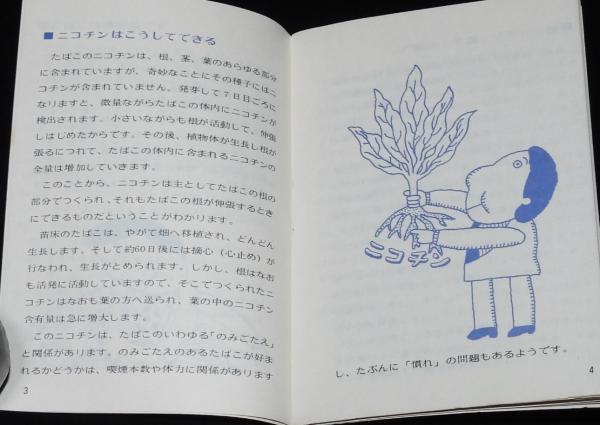 ■ニコチンはこうしてできる
たばこのニコチンは、根、茎、葉のあらゆる部分
に含まれていますが、奇妙なことにその種子にはニ
コチンが含まれていません。発芽して7日目ごろに
なりますと、微量ながらたばこの体内にニコチンが
検出されます。小さいながらも根が活動して、伸張
しはじめたからです。その後、植物体が生長し根が
張るにつれて、たばこの体内に含まれるニコチンの
全量は増加していきます。
このことから、ニコチンは主としてたばこの根の
部分でつくられ、それもたばこの根が伸張するとき
にできるものだということがわかります。
苗床のたばこは、やがて畑へ移植され、どんどん
生長します。そして約60日後には摘心（心止め）が
行なわれ、生長がとめられます。しかし、根はなお
も活発に活動していますので、そこでつくられたニ
コチンはなおも葉の方へ送られ、葉の中のニコチン
含有量は急に増大します。
このニコチンは、たばこのいわゆる「のみごたえ」
と関係があります。のみごたえのあるたばこが好ま
れるかどうかは、喫煙本数や体力に関係があります
3
ニコチン
し、たぶんに「慣れ」の問題もあるようです。
4